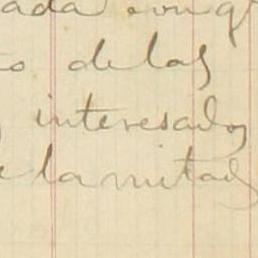 ada
o de las
interesados
e la mitad